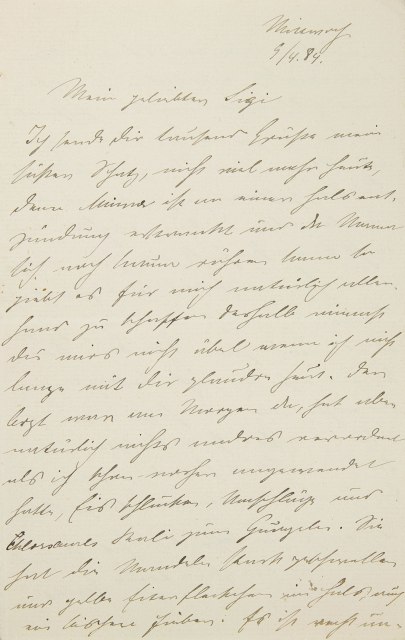 Mittwoch
9/4. 84.
Mein geliebter Sigi
Ich sende dir tausend Grüße mein
süßer Schatz, nicht viel mehr heute,
denn Minna ist an einer Halsent-
zündung erkrankt und da Mama
sich noch kaum rühren kann so
giebt es für mich natürlich aller-
hand zu schaffen deshalb nimmst
du mirs nicht übel wenn ich nicht
lange mit dir plaudre heut. Der
Arzt war am Morgen da, hat aber
natürlich nichts andres verordnet
als ich schon vorher angewendet
hatte, Eis schlucken, Umschläge und
Chlorsaures Kali zum Gurgeln. Sie
hat die Mandeln stark geschwollen
und gelbe Eiterfleckchen im Hals auch
ein bischen Fieber. Es ist recht un-